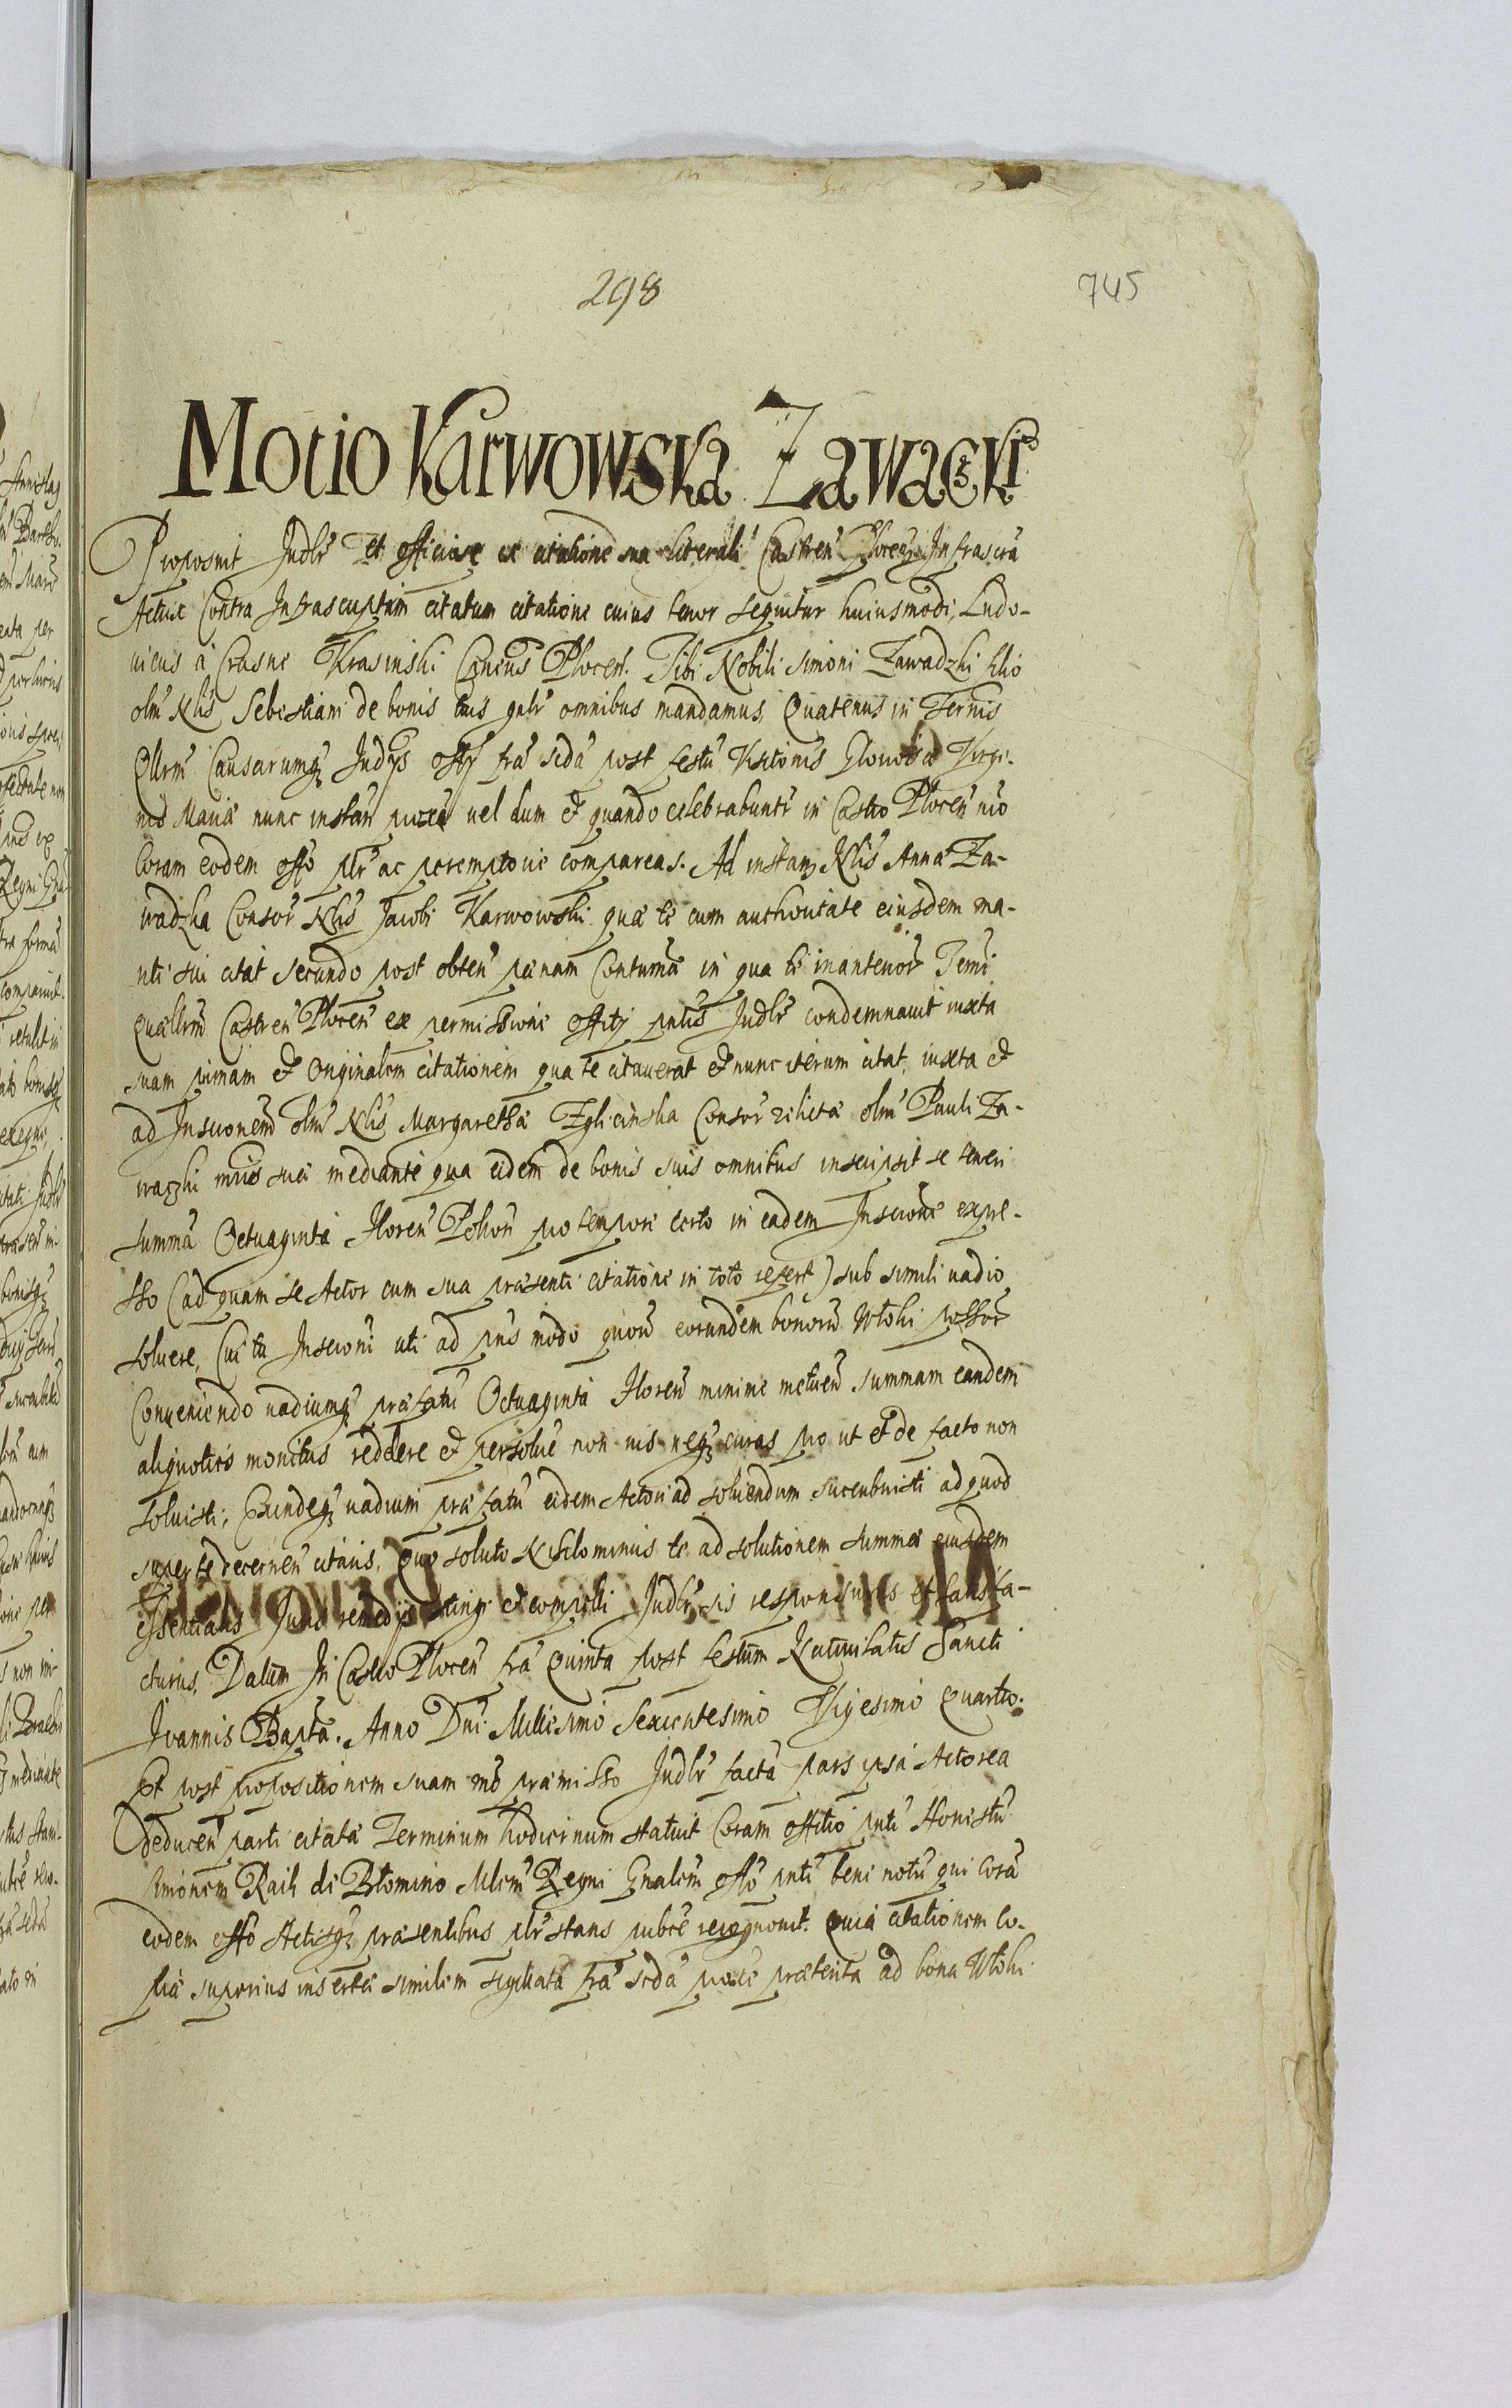 298
745
Motio Karwowska Zawacki
Proposuit Judlr et officiose ex citatione sua literali Castren Plocen Infrascra
Actrix Contra Infrascriptum citatum citatione cuius tenor sequitur huiusmodi, Ludo-
uicus a Crasne Krasinski Caneus Plocen. Tibi Nobili Simoni Zawadzki filio
olim Nlis Sebestiani de bonis tuis gnlr omnibus mandamus, Quatenus in Ternis
Qllrm Causarumq Judys offy fra scda post festu Visitonis Gloriosæ Virgi-
nis Mariæ nunc instan proxa uel dum et quando celebrabuntr in Castro Plocen nro
Coram eodem offo plr ac peremptorie compareas. Ad instan Nlis Anna Za-
wadzka Consor Nlis Jacobi Karwowski quæ te cum authoritate eiusdem ma-
riti sui citat secundo post obten pænam Contumæ in qua te in anteriori Termi
Quællrm Castren Plocen ex permissione offity pntis Judlr condemnauit iuxta
suam primam et Originalem citationem qua te citauerat et nunc iterum citat, iuxta et
ad Inscrionem olim Nlis Margarethæ Zglicinska Consor relictæ olim Pauli Za-
wadzki mris sui mediante qua eidem de bonis suis omnibus inscripsit se teneri
summa Octuaginta Floren Polion pro tempore certo in eadem Inscrione expre-
sso (ad quam se Actor cum sua præsenti citatione in toto refert) sub simili uadio
soluere, Cui tu Inscrioni uti ad pns modo quoru eorundem bonoru Wtoki possor
Conueniendo uadiumq præfatu Octuaginta Floren minime metuen summam eandem
aliquoties monitus reddere et persolue non uis neq curas pro ut et de facto non
soluisti, Eundeq uadium præfatu eidem Actori ad soluendum sucubuisti ad quod
super te decernen citaris, Quo soluto Nihilominus te ad solutionem summæ eiusdem
essentialis Juris remedys stringi et compelli Judlr sis responsurus et satisfa-
cturus, Datum In Castro Plocen fra Quinta post festum Natiuitatis Sancti
Joannis Bapta. Anno Dni Millesimo Sexcentesimo Vigesimo Quarto.
Et post propositionem suam mo præmisso Judlr facta pars ipsa Actorea
deducen parti citatæ Terminum hodiernum statuit Coram offitio pnti Honestu
Simonem Raik de Blomino Mlem Regni Gnalem offo pnti bene notu qui cora
eodem offo Actisq præsentibus plr stans pubce recognouit. Quia citationem Co-
piæ superius insertæ similem sigillata fra scda proxe præterita ad bona Wtoki